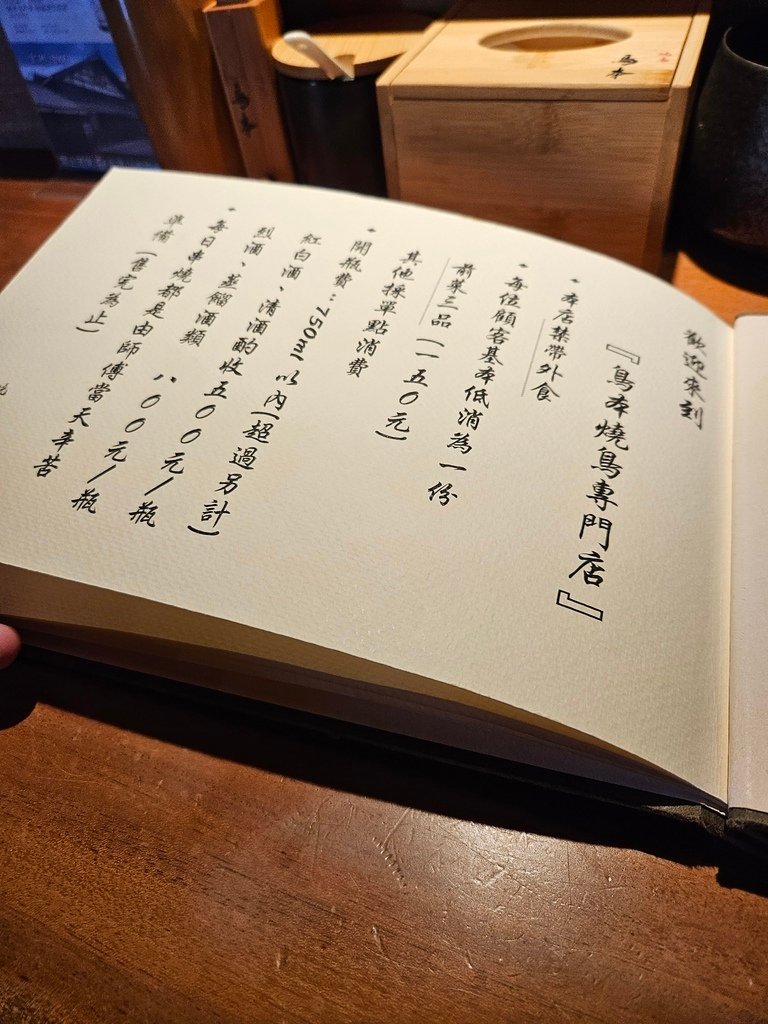 歡迎來到
『鳥本燒鳥專門店』
• 本店禁帶外食
• 每位顧客基本低消為一份
前菜三品(一五0元)
其他採單點消費
• 開瓶費:750ml以內(超過另計)
紅白酒、清酒酌收五00元/瓶
烈酒、蒸餾酒類 八00元/瓶
• 每日串燒都是由師傅當天辛苦
準備(售完為止)
鳥本
鳥本